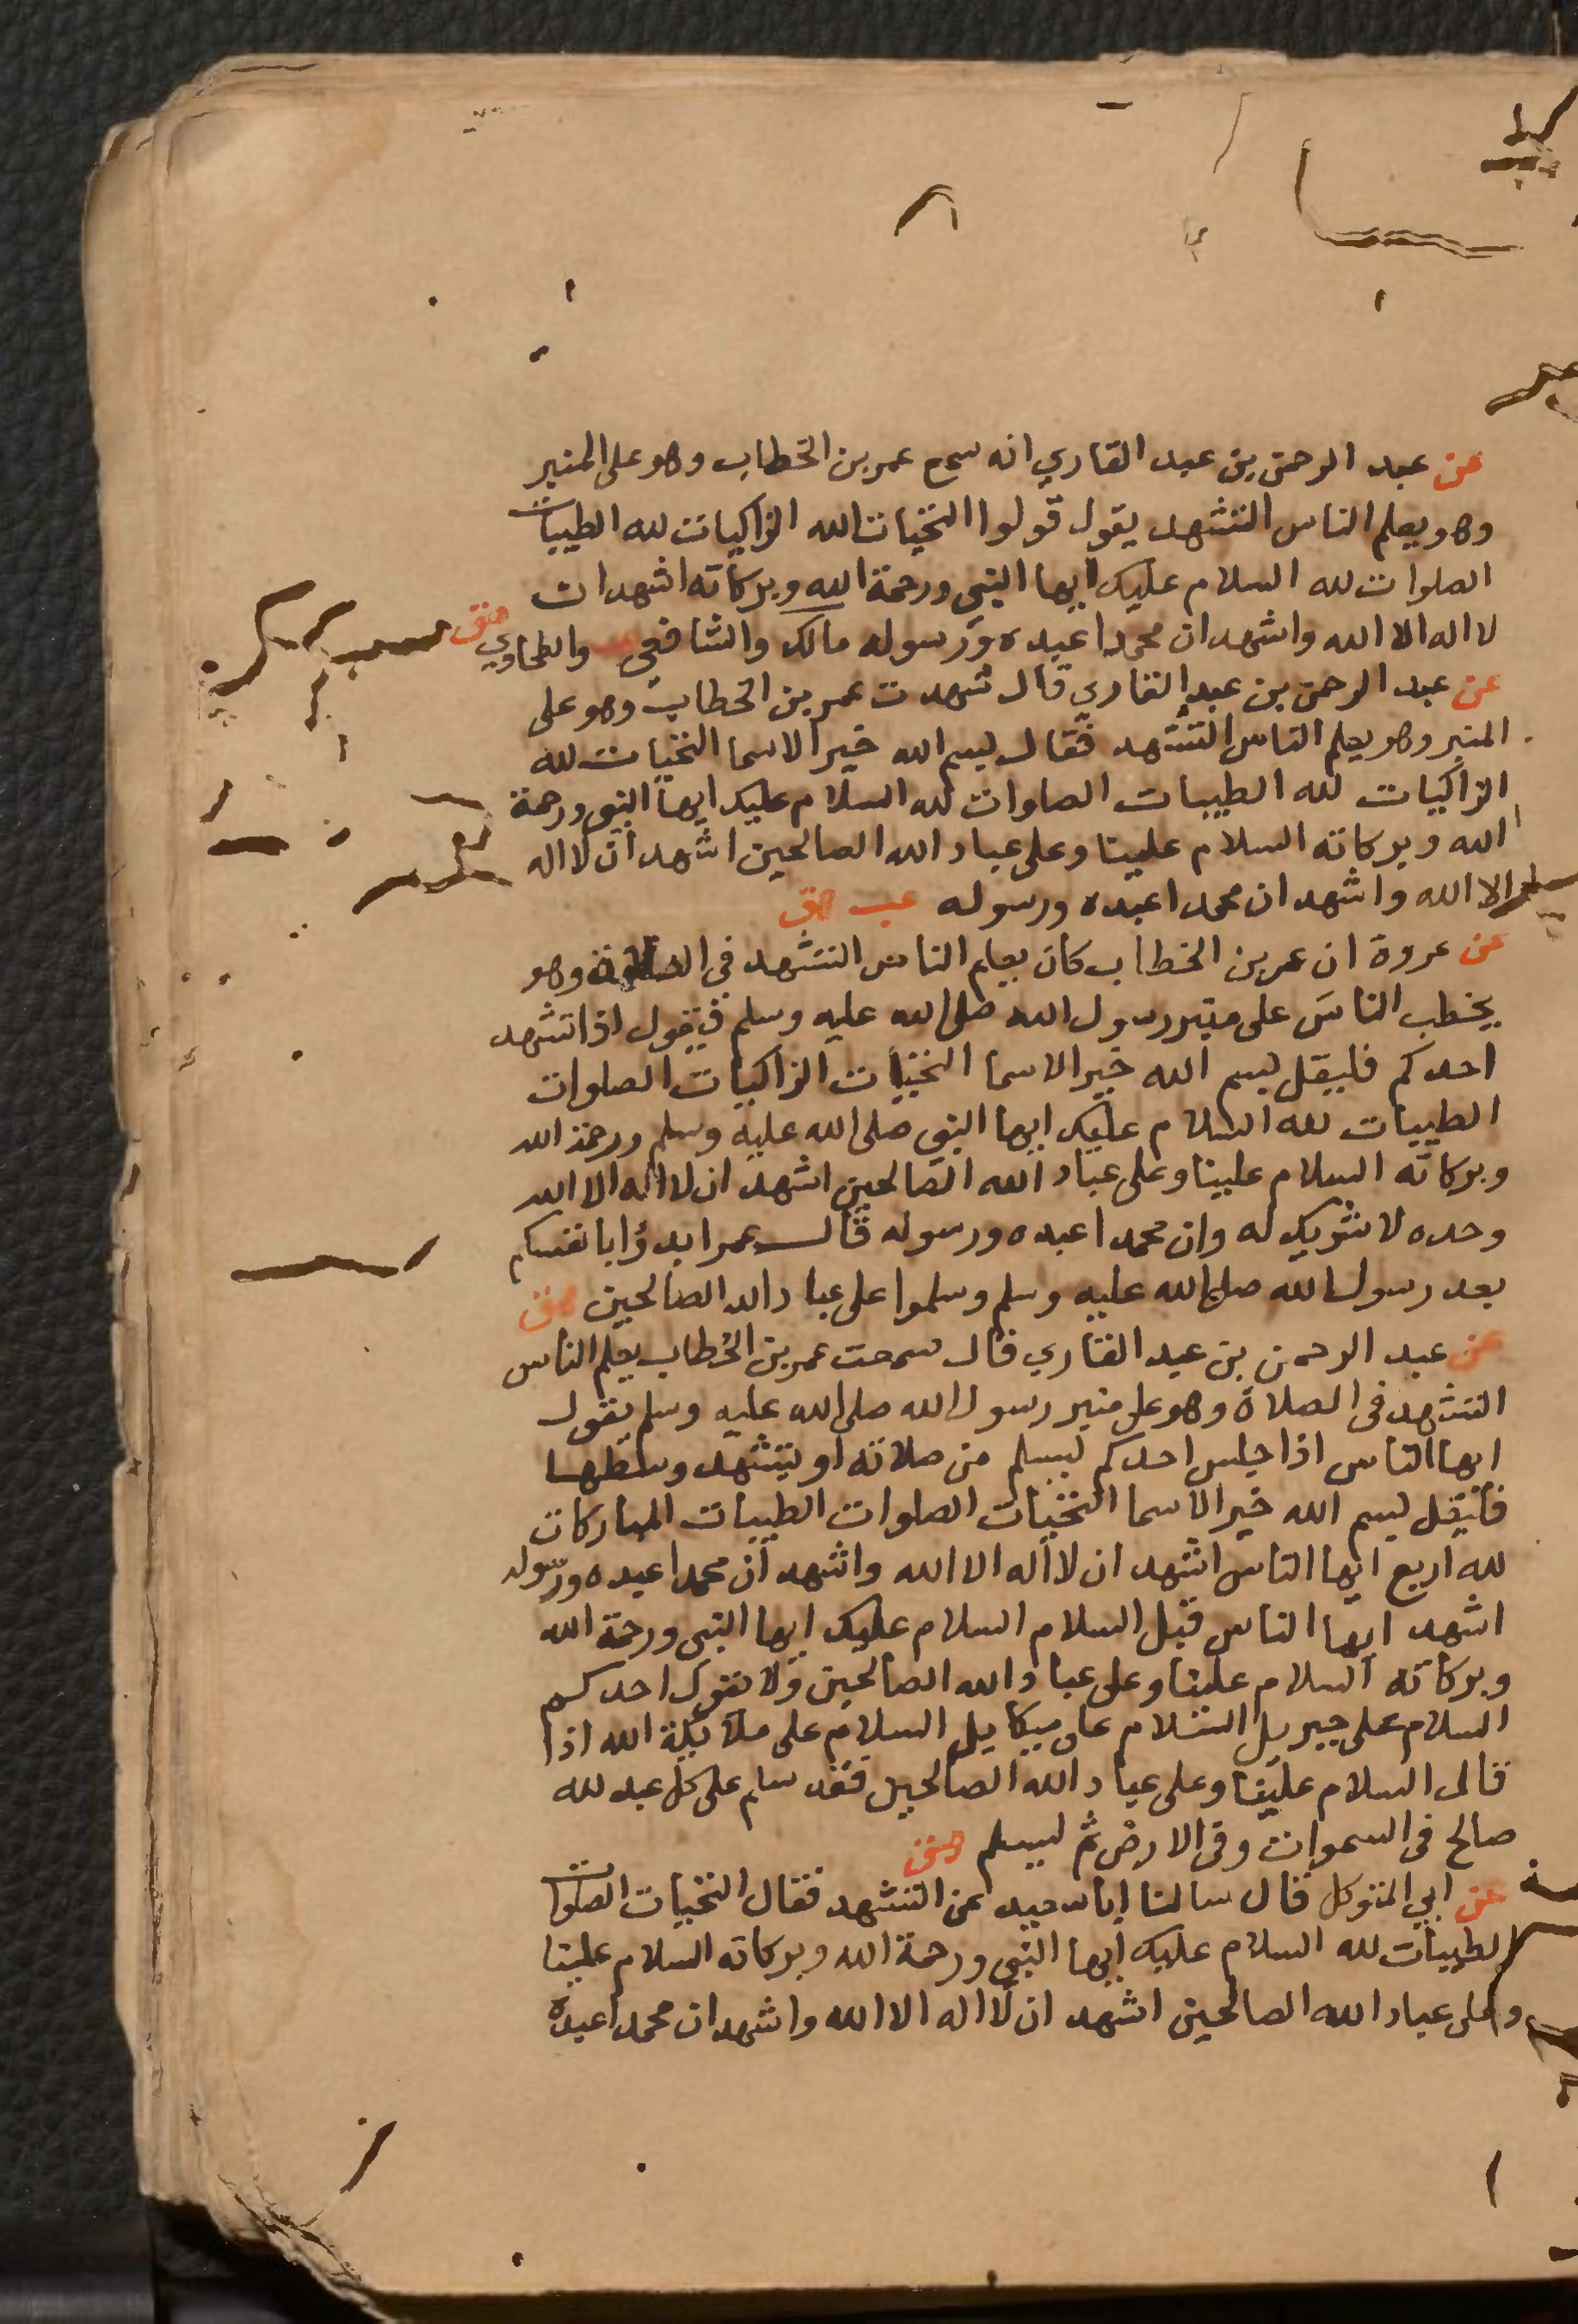 عن عبد الرحمن بن عبد القاري انه سمع عمر بن الخطاب وهو على المنبر
وهو يعلم الناس التشهد يقول قولوا التحيات لله الزاكيات لله الطيبات
الصلوات لله السلام عليك ايها النبي ورحمة الله وبركاته اشهد ان
لا اله الا الله واشهد ان محمدا عبده ورسوله مالك والشافعي والطحاوي هق
عن عبد الرحمن بن عبد القاري قال شهدت عمر بن الخطاب وهو على
المنبر وهو يعلم الناس التشهد فقال بسم الله خير الاسما التحيات لله
الزاكيات لله الطيبات الصلوات لله السلام عليك ايها النبي ورحمة
الله وبركاته السلام علينا وعلى عباد الله الصالحين اشهد ان لا اله
الا الله واشهد ان محمدا عبده ورسوله عب هق
عن عروة ان عمر بن الخطاب كان يعلم الناس التشهد في الصلاة وهو
يخطب الناس على منبر رسول الله صلى الله عليه وسلم فيقول اذا تشهد
احدكم فليقل بسم الله خير الاسما التحيات الزاكيات الصلوات
الطيبات لله السلام عليك ايها النبي صلى الله عليه وسلم ورحمة الله
وبركاته السلام علينا وعلى عباد الله الصالحين اشهد ان لا اله الا الله
وحده لا شريك له وان محمدا عبده ورسوله قال عمر ابدؤا بانفسكم
بعد رسول الله صلى الله عليه وسلم وسلموا على عباد الله الصالحين هق
عن عبد الرحمن بن عبد القاري قال سمعت عمر بن الخطاب يعلم الناس
التشهد في الصلاة وهو على منبر رسول الله صلى الله عليه وسلم يقول
ايها الناس اذا جلس احدكم ليسلم من صلاته او يتشهد وسطها
فليقل بسم الله خير الاسما التحيات الصلوات الطيبات المباركات
لله اربع ايها الناس اشهد ان لا اله الا الله واشهد ان محمدا عبده ورسوله
اشهد ايها الناس قبل السلام السلام عليك ايها النبي ورحمة الله
وبركاته السلام علينا وعلى عباد الله الصالحين ولا يقول احدكم
السلام على جبريل السلام على ميكايل السلام على ملايكة الله اذا
قال السلام علينا وعلى عباد الله الصالحين فقد سلم على كل عبد لله
صالح في السموات وفي الارض ثم ليسلم هق
عن ابي المتوكل قال سالنا ابا سعيد عن التشهد فقال التحيات الصلوات
الطيبات لله السلام عليك ايها النبي ورحمة الله وبركاته السلام علينا
وعلى عباد الله الصالحين اشهد ان لا اله الا الله واشهد ان محمدا عبده